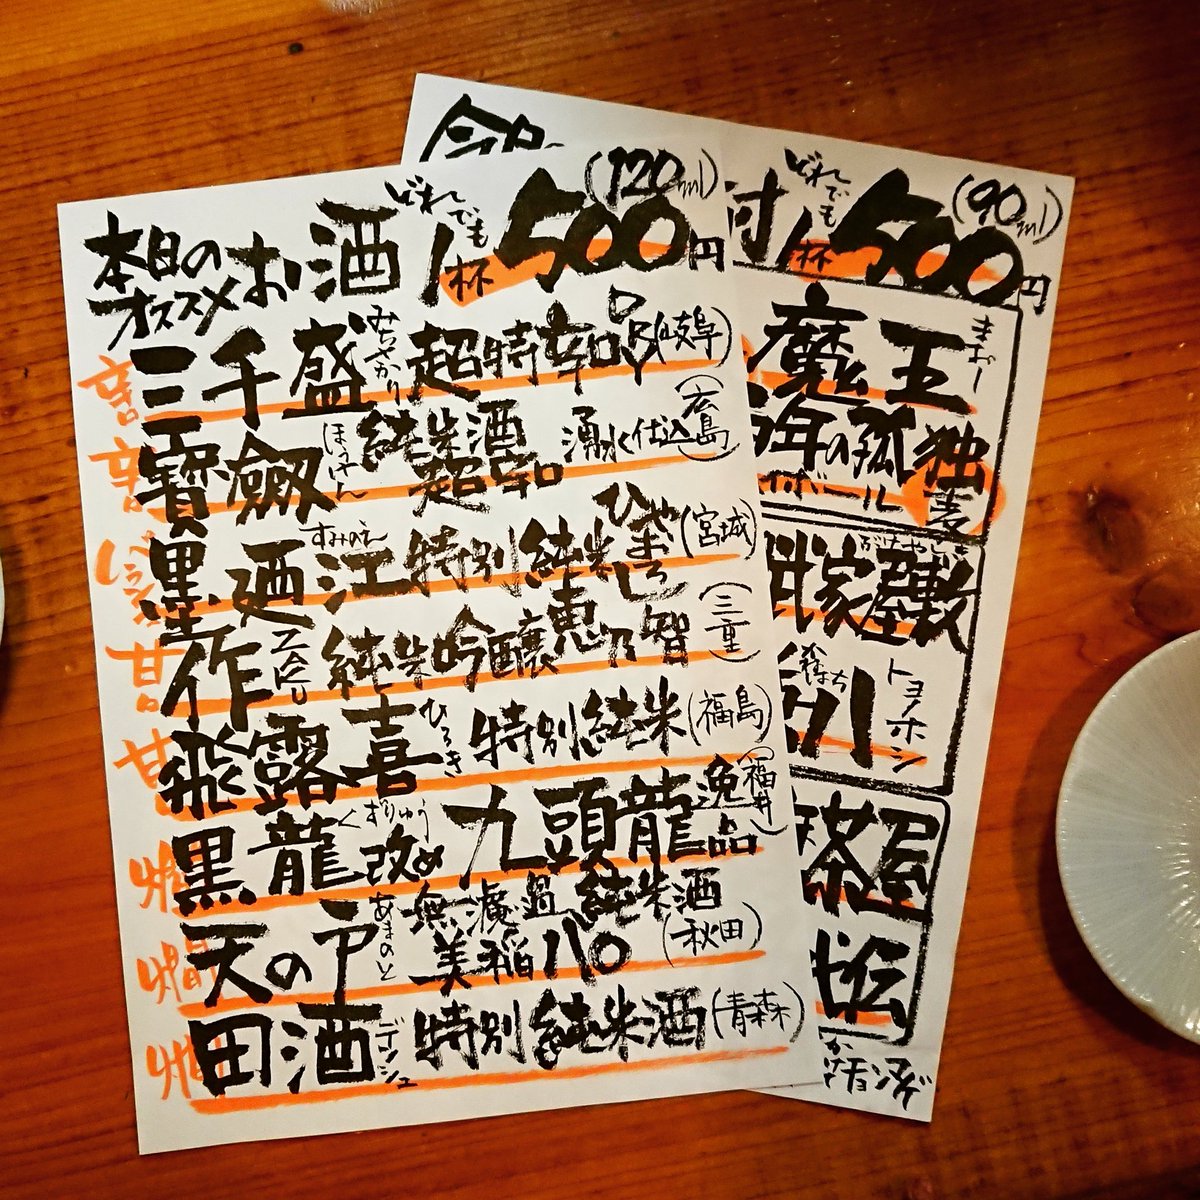 本日のオススメ お酒 どれでも 1杯 500円 (120ml)
辛口 三千盛 みちさかり 超特辛口 (岐阜)
辛口 寶劔 ほうけん 純米酒 超辛口 湧水仕込 (広島)
墨廼江 すみのえ 特別純米 ひやおろし (宮城)
甘口 作 ZAKU 純米吟醸 恵乃智 (三重)
甘口 飛露喜 ひろき 特別純米 (福島)
燗 黒龍 くずりゅう 改め 九頭龍 逸品 (福井)
燗 天の戸 あまのと 無濾過 純米酒 美稲八〇 (秋田)
燗 田酒 デンシュ 特別純米酒 (青森)
どれでも 1杯 500円 (90ml)
魔王 まおー
年の孤独 麦
ボール
家屋敷
八 トヨノホシ
茶屋
伝